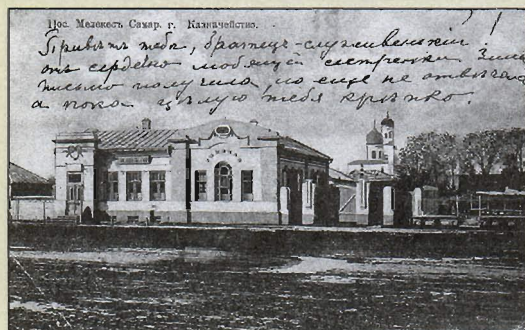 Пос. Мелекесъ Самар. г. Казначейство.
Привѣтъ тебѣ, братецъ-служивенскій!
отъ сердечно любящей сестренки Зины
письмо получила, но еще не отвѣчала
а пока цѣлую тебя крѣпко.